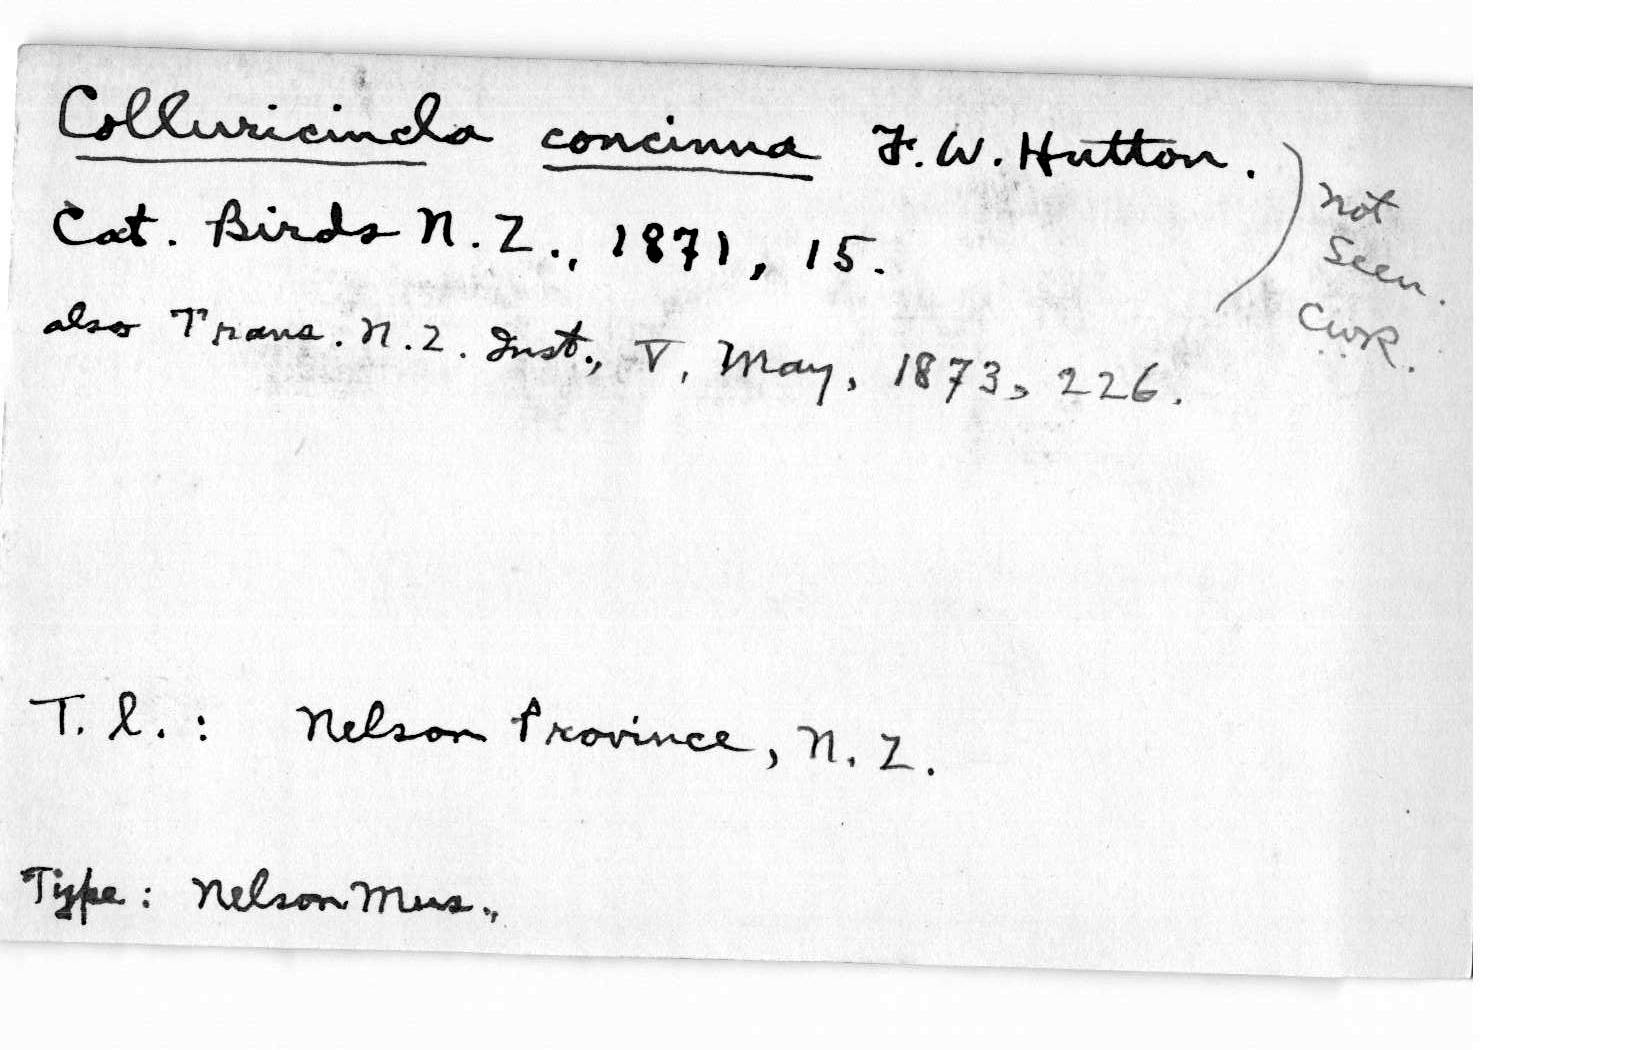 Colluricincla concinna F. W. Hutton.
Cat. Birds N. Z., 1871, 15.
also Trans. N. Z. Inst., V, May, 1873, 226.
Not
Seen.
CWR.
T. l.: Nelson Province, N. Z.
Type: Nelson Mus.,